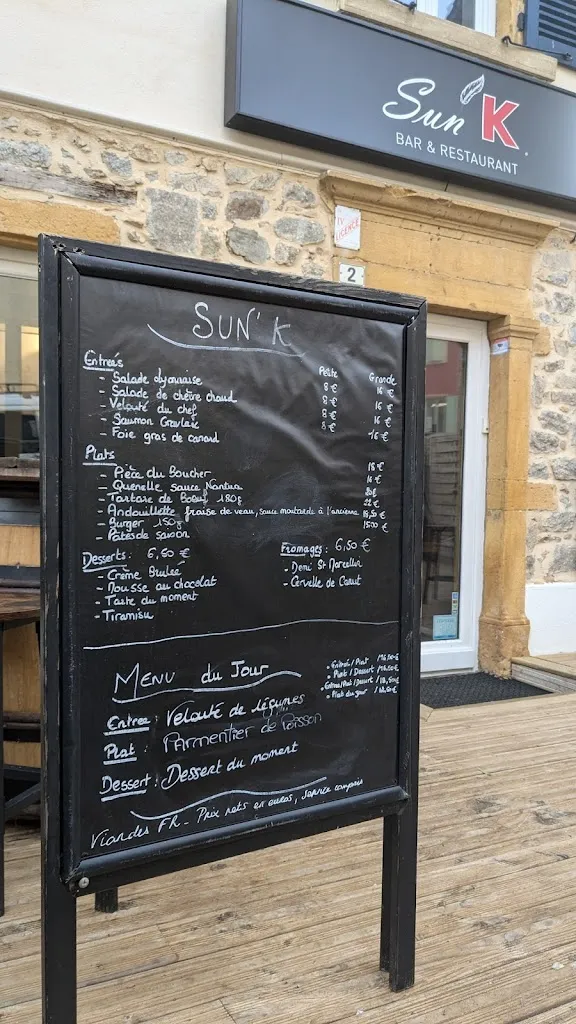 Sun'K
BAR & RESTAURANT
IV LICENCE
2
SUN'K
Entrées Petite Grande
- Salade Lyonnaise 8€ 16€
- Salade de chèvre chaud 8€ 16€
- Velouté du chef 8€ 16€
- Saumon Gravlax 8€
- Foie gras de canard 16€
Plats
- Pièce du Boucher 18€
- Quenelle sauce Nantua 16€
- Tartare de Boeuf 180g
- Andouillette fraise de veau, sauce moutarde à l'ancienne 22€
- Burger 150g
- Pâtes de saison
Desserts: 6,50€
- Crème Brulée
- Mousse au chocolat
- Tarte du moment
- Tiramisu
Fromages: 6,50€
- Demi St Marcellin
- Cervelle de Canut
MENU du Jour
• Entrée/Plat
• Plat/Dessert
• Entrée/Plat/Dessert
• Plat du jour
Entrée: Velouté de légumes
Plat: Parmentier de Poisson
Dessert: Dessert du moment
Viandes FR - Prix nets en euros, service compris